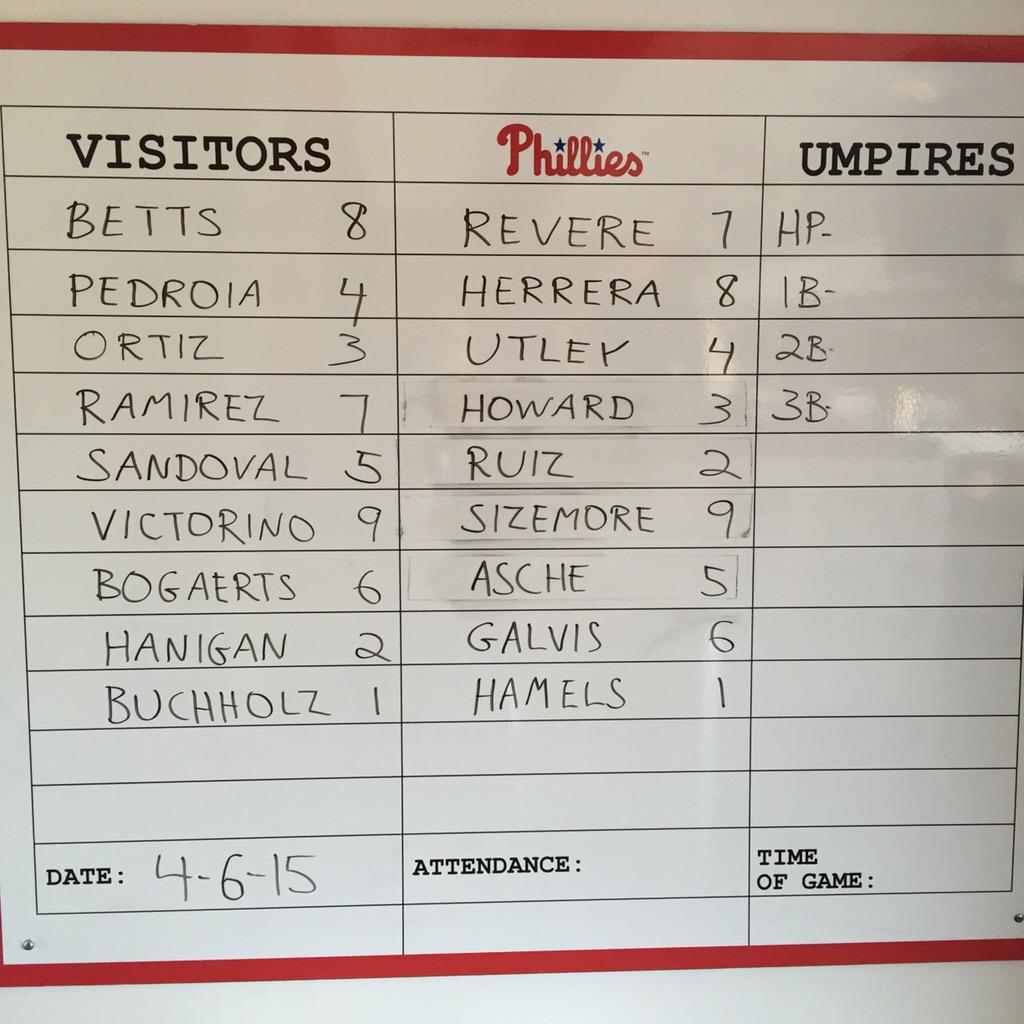 VISITORS Phillies™ UMPIRES
BETTS 8 REVERE 7 HP-
PEDROIA 4 HERRERA 8 1B-
ORTIZ 3 UTLEY 4 2B-
RAMIREZ 7 HOWARD 3 3B-
SANDOVAL 5 RUIZ 2
VICTORINO 9 SIZEMORE 9
BOGAERTS 6 ASCHE 5
HANIGAN 2 GALVIS 6
BUCHHOLZ 1 HAMELS 1
DATE: 4-6-15 ATTENDANCE: TIME
OF GAME: